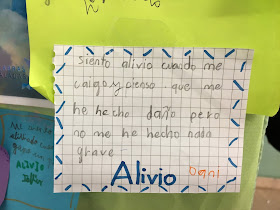 siento alivio cuando me
caigo y pienso que me
he hecho daño pero
no me he hecho nada
grave.
Alivio Dani
ALIVIO